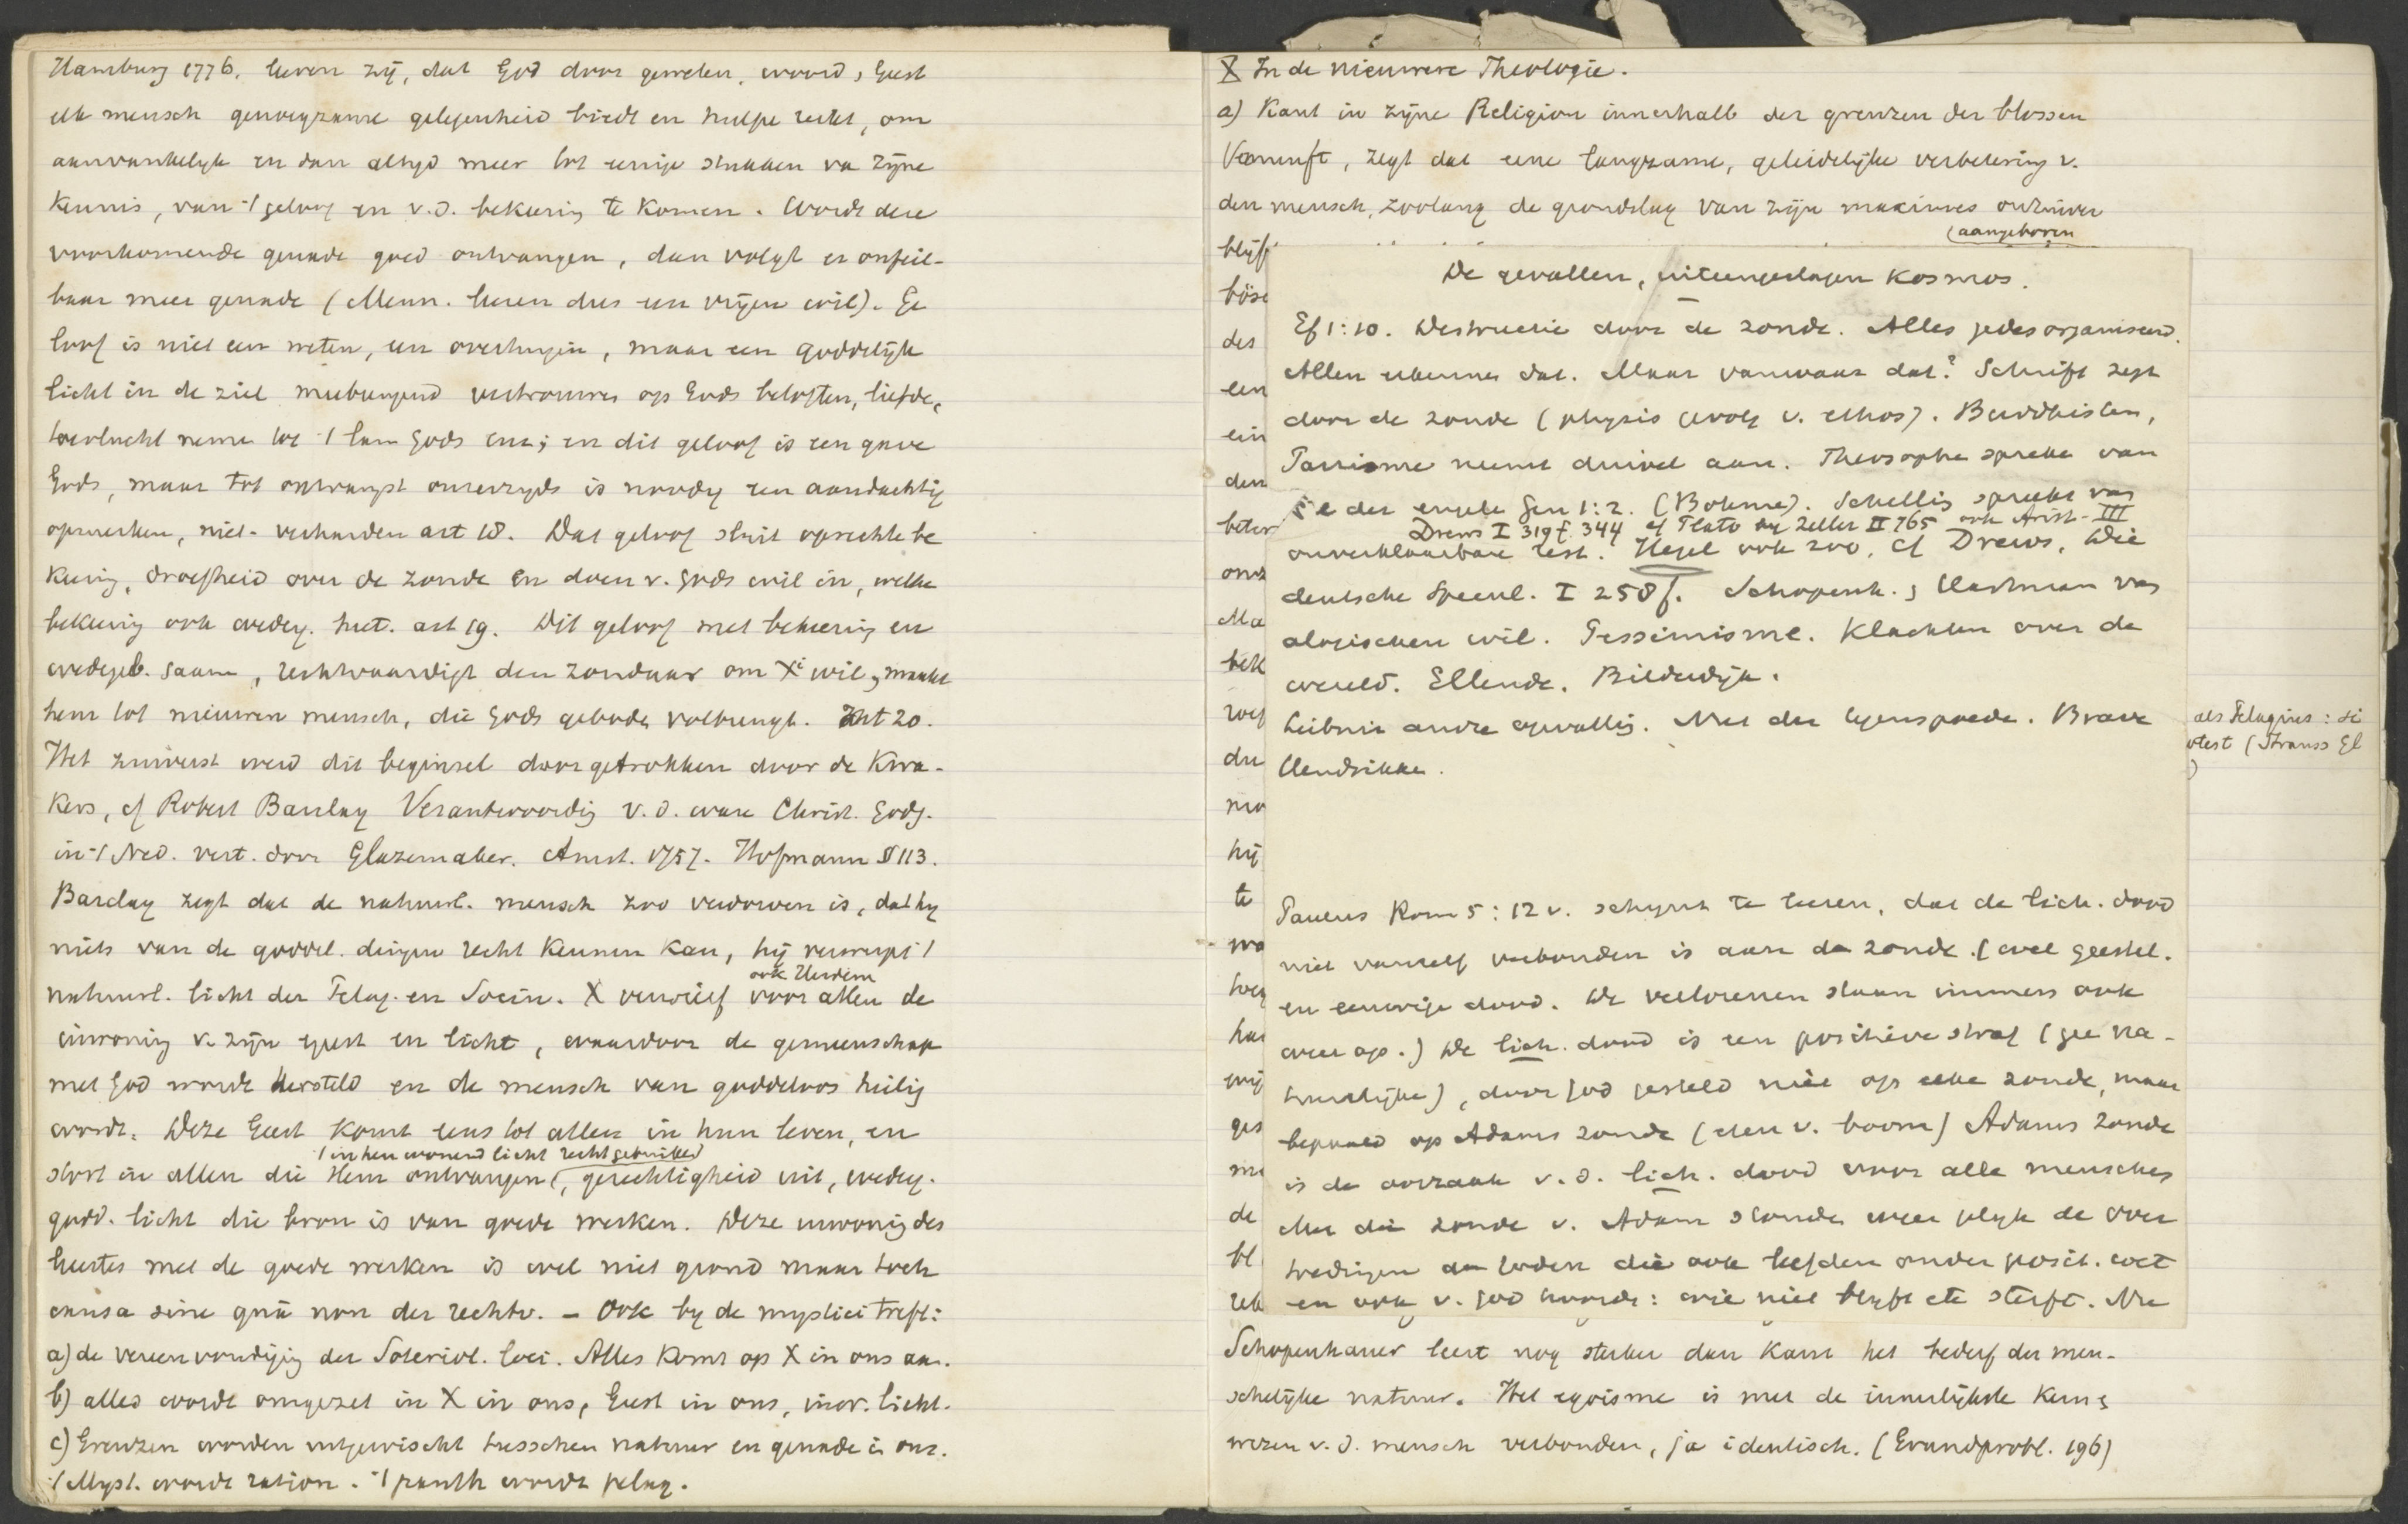 Hamburg 1776. leren zij, dat God door geweten, woord, Geest
elk mensch genoegzame gelegenheid biedt en hulpe reikt, om
aanvankelijk en dan altijd meer tot eenige stukken va zijne
kennis, van 't geloof en v.d. bekeering te komen. Wordt deze
voorkomende genade goed ontvangen, dan volgt er onfeil-
baar meer genade (Menn. leeren dus een vrijen wil). Ge
loof is niet een weten, een overtuigen, maar een goddelijk
licht in de ziel meebrengend vertrouwen op Gods beloften, liefde,
toevlucht neme tot 't lam Gods enz; en dit geloof is een gave
Gods, maar tot ontvangst onzerzijds is noodig een aandachtig
opmerken, niet-verharden art 18. Dat geloof sluit oprechte be
keering, droefheid over de zonde en doen v. Gods wil in, welke
bekeering ook wederg. heet. art 19. Dit geloof met bekeering en
wedergeb. saam, rechtvaardigt den zondaar om Xi wil, maakt
hem tot nieuwen mensch, die Gods geboden volbrengt. Art 20.
Het zuiverst werd dit beginsel doorgetrokken door de Kwa-
kers, cf Robert Barclay Verantwoordig v.d. ware Christ. Godg.
in 't Ned. vert. door Glazemaker. Amst. 1757. Hofmann § 113.
Barclay zegt dat de natuurl. mensch zoo verdorven is, dat hij
niets van de goddel. dingen recht kennen kan, hij verwerpt 't
ook Heiden
natuurl. licht der Pelag. en Socin. X verwierf voor allen de
inwoning v. zijn geest en licht, waardoor de gemeenschap
met God wordt hersteld en de mensch van goddeloos heilig
wordt. Deze Geest komt eens tot allen in hun leven, en
't in hen wonend licht recht gebruiken
stort in allen die Hem ontvangen (, gerechtigheid uit, wederg.
godd. licht die bron is van goede werken. Deze inwoning des
Geestes met de goede werken is wel niet grond maar toch
causa sine quâ non der rechtv. – Ook bij de mystici treft:
a) de vereenvoudiging der Soteriol. loci. Alles komt op X in ons aan.
b) alles wordt omgezet in X in ons, Geest in ons, inw. licht.
c) Grenzen worden uitgewischt tusschen natuur en genade in ons.
't Myst. wordt ration. 't panth wordt pelag.
X In de nieuwere Theologie.
a) Kant in zijne Religion innerhalb der grenzen der blossen
Vernunft, zegt dat eene langzame, geleidelijke verbetering v.
den mensch, zoolang de grondslag van zijn maximes onzuiver
(aangeboren
blijft
böse
des
een
ein
den
beter
onz
Ma
bek
zoo
du
mo
hij
te
wo
hoe
har
wij
ges
me
de
bl
rek
De gevallen, uiteengeslagen Kosmos.
Ef 1:10. Destructie door de zonde. Alles gedesorganiseerd.
Allen erkennen dat. Maar vanwaar dat? Schrift zegt
door de zonde (physis gevolg v. ethos). Buddhisten,
Parsisme neemt duivel aan. Theosophe spreke van
val der engele Gen 1:2. (Böhme). Schelling spreekt van
Drews I 319 f. 344 cf Plato bij Zeller II 765 ook Arist. III
onverklaarbare rest. Hegel ook zoo, cf Drews, Die
deutsche Specul. I 258 f. Schopenh. & Hartman van
alogischen wil. Pessimisme. Klachten over de
wereld. Ellende. Bilderdijk.
Leibniz andre opvattig. Met der tegenspoede. Brave
Hendrikke.
als Pelagius: si
otest (Strauss Gl
)
Paulus Rom 5:12 v. schijnt te leeren, dat de lich. dood
niet vanzelf verbonden is aan de zonde. (wel geestel.
en eeuwige dood. De verlorenen staan immers ook
weer op.) De lich. dood is een positieve straf (gee na-
tuurlijke), door God gesteld niet op elke zonde, maar
bepaald op Adams zonde (eten v. boom) Adams zonde
is de oorzaak v.d. lich. dood voor alle menschen
Met die zonde v. Adam stonden weer gelijk de over
tredingen der Joden die ook leefden onder posit. wet
en ook v. God hoorde: wie niet blijft etc sterft. Nu
Schopenhauer leert nog sterker dan Kant het bederf der men-
schelijke natuur. Het egoisme is met de innerlijkste kern &
wezen v.d. mensch verbonden, ja identisch. (Grundprobl. 196)